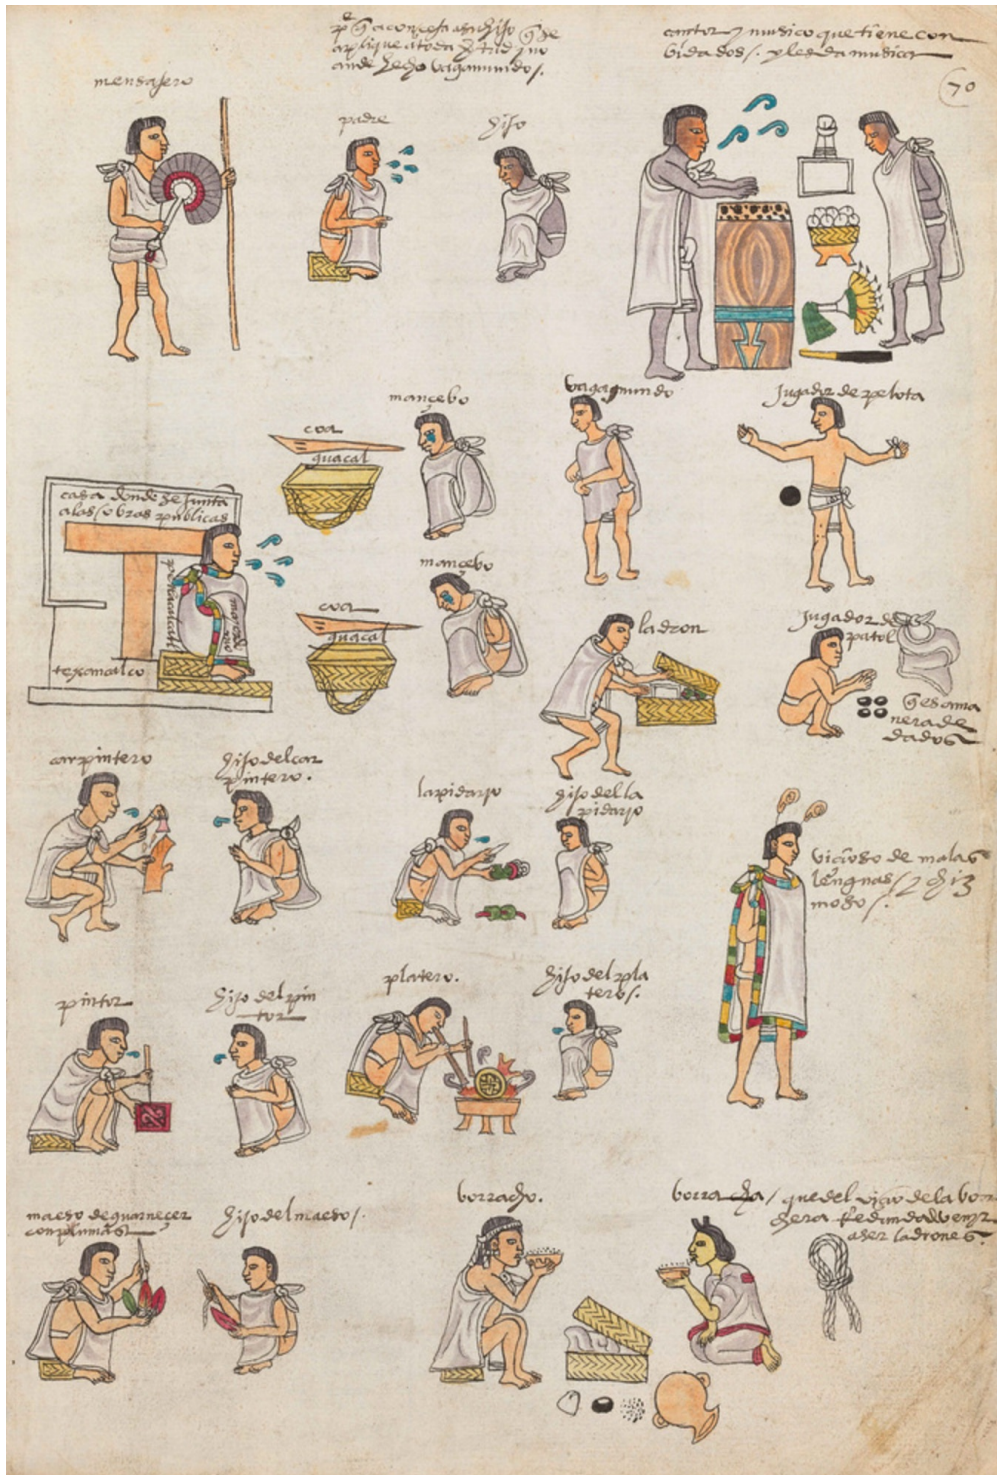 mensajero
padre q̃ aconseja a su hijo q̃ se
aplique a toda virtud y no
ande hecho vagamundo/.
cantor y musico que tiene con
bidados/. y les da musica
70
padre
hijo
mançebo
coa
guacal
vagamundo
Jugador de pelota
casa donde se junta
a las obras publicas
petlacalcatl
mayordomo
texancalco
mançebo
coa
guacal
ladron
Jugador de
patol
q̃ es a ma
nera de
dados
carpintero
hijo del car
pintero.
lapidario
hijo del la
pidario
vicioso de malas
lenguas / y chiz
moso/.
pintor
hijo del pin
tor
platero.
hijo del pla
tero/.
maeso de guarneçer
con plumas
hijo del maeso/.
borracho.
borracha / que del viçio de la borra
chera redunda venir
a ser ladrones.